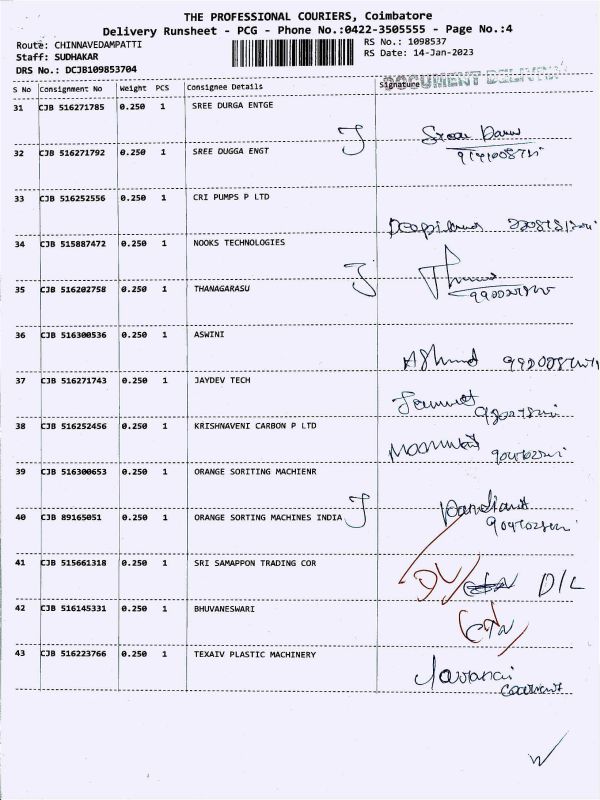 THE PROFESSIONAL COURIERS, Coimbatore
Delivery Runsheet - PCG - Phone No.:0422-3505555 - Page No.:4
Route: CHINNAVEDAMPATTI
RS No.: 1098537
Staff: SUDHAKAR
RS Date: 14-Jan-2023
DRS No.: DCJB109853704
DOCUMENT DELIVERY
S No Consignment No Weight PCS Consignee Details Signature
31 CJB 516271785 0.250 1 SREE DURGA ENTGE
32 CJB 516271792 0.250 1 SREE DUGGA ENGT
33 CJB 516252556 0.250 1 CRI PUMPS P LTD
34 CJB 515887472 0.250 1 NOOKS TECHNOLOGIES
35 CJB 516202758 0.250 1 THANAGARASU
36 CJB 516300536 0.250 1 ASWINI
37 CJB 516271743 0.250 1 JAYDEV TECH
38 CJB 516252456 0.250 1 KRISHNAVENI CARBON P LTD
39 CJB 516300653 0.250 1 ORANGE SORITING MACHIENR
40 CJB 89165051 0.250 1 ORANGE SORTING MACHINES INDIA
41 CJB 515661318 0.250 1 SRI SAMAPPON TRADING COR
D/L
42 CJB 516145331 0.250 1 BHUVANESWARI
43 CJB 516223766 0.250 1 TEXAIV PLASTIC MACHINERY